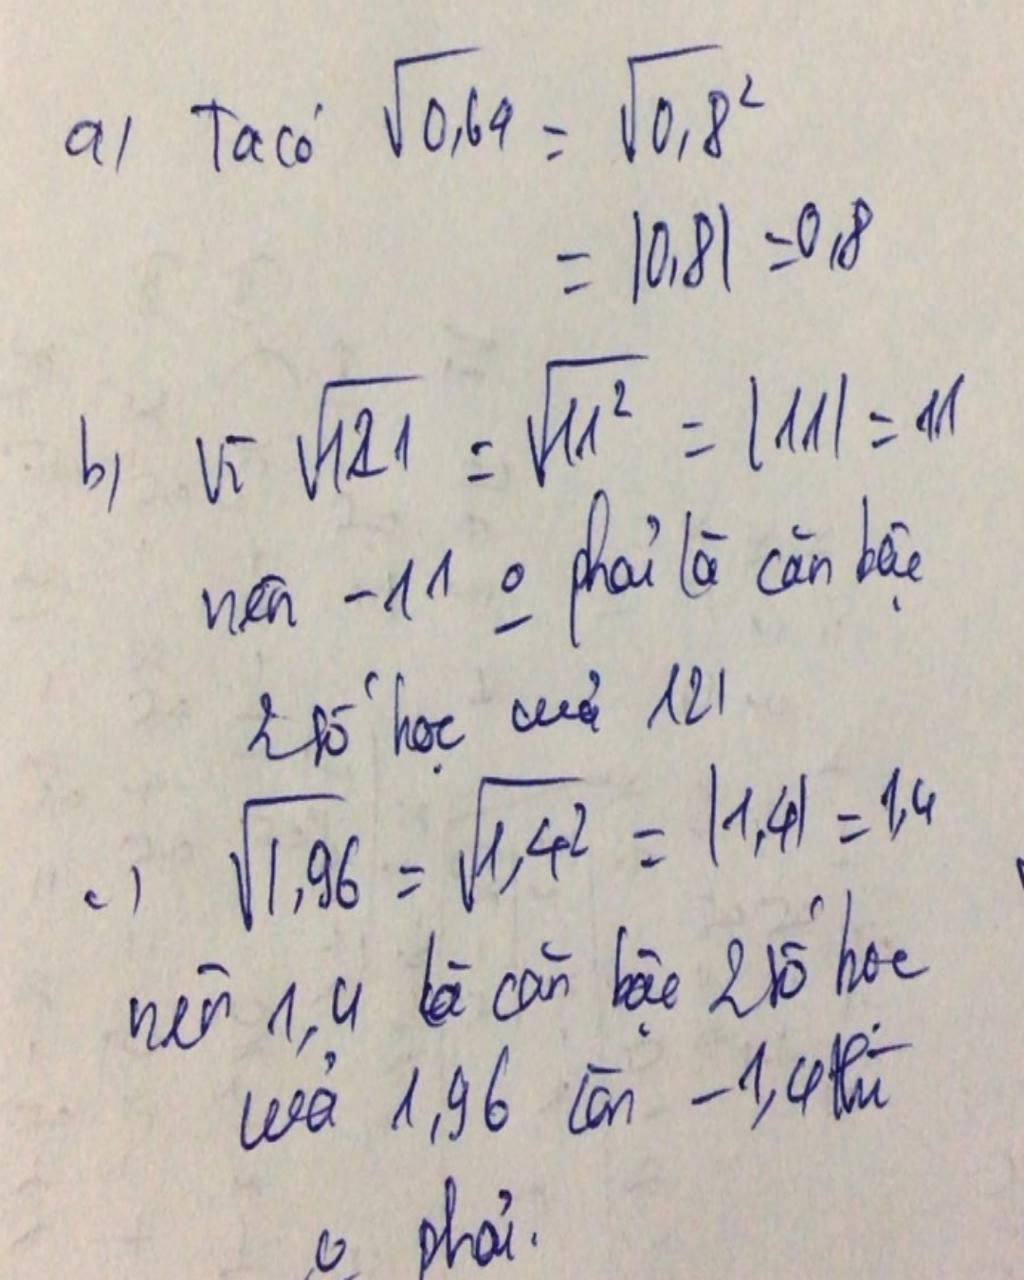 a) Ta có √0,64 = √0,8²
= |0,8| = 0,8
b) Vì √121 = √11² = |11| = 11
nên -11 o phải là căn bậc
2 số học của 121
c) √1,96 = √1,4² = |1,4| = 1,4
nên 1,4 là căn bậc 2 số học
của 1,96 còn -1,4 thì
o phải.